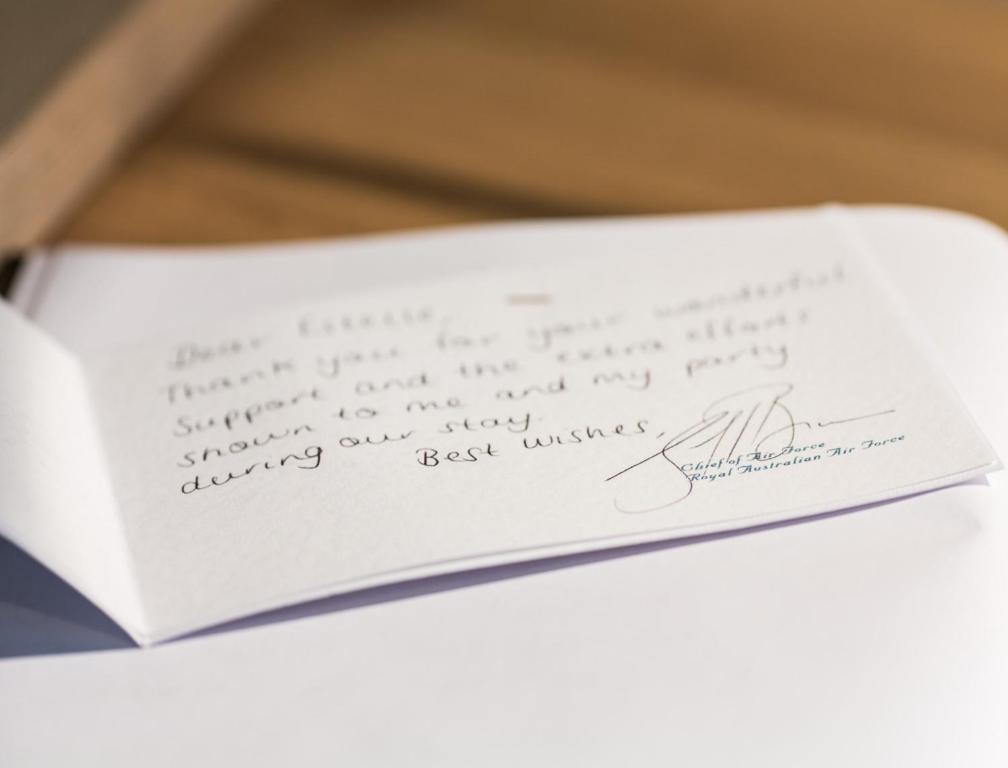 Dear Estelle,
Thank you for your wonderful
Support and the extra efforts
shown to me and my party
during our stay.
Best Wishes,
Chief of Air Force
Royal Australian Air Force